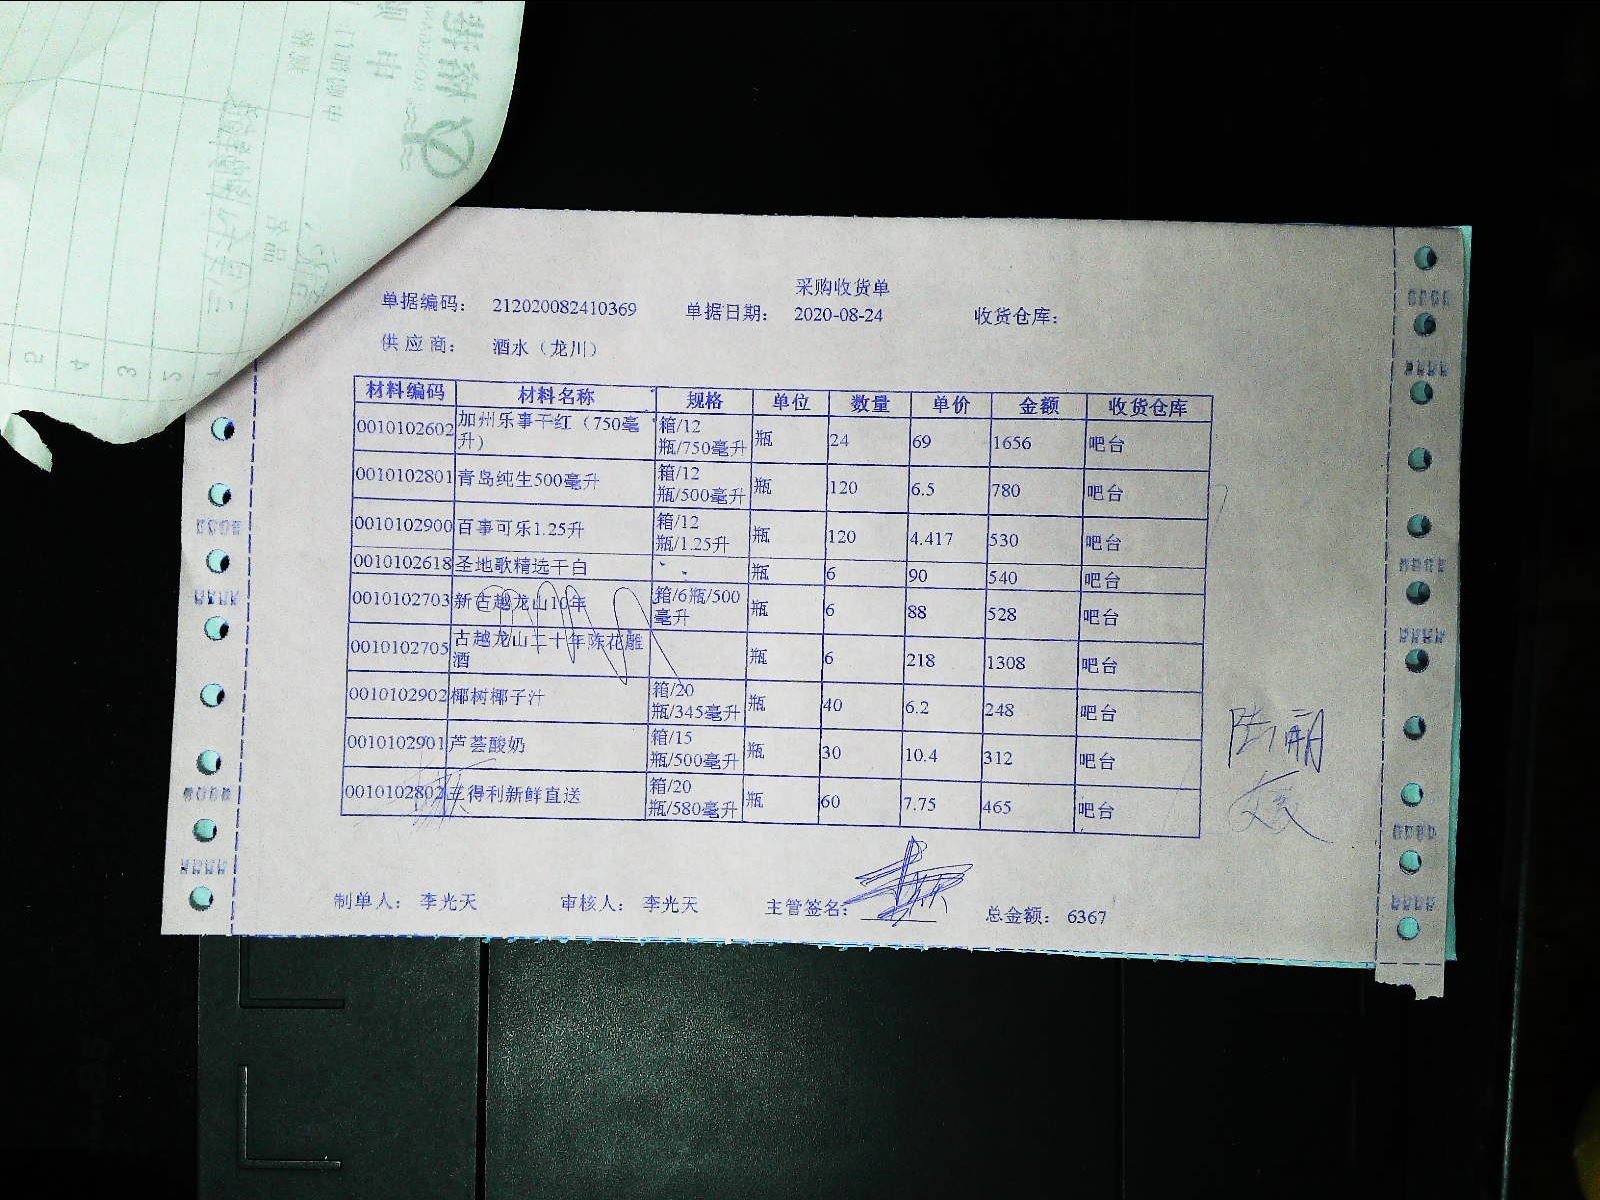 采购收货单
单据编码： 212020082410369 单据日期： 2020-08-24 收货仓库：
供应商： 酒水（龙川）
材料编码 材料名称 规格 单位 数量 单价 金额 收货仓库
0010102602 加州乐事干红（750毫升） 箱/12瓶/750毫升 瓶 24 69 1656 吧台
0010102801 青岛纯生500毫升 箱/12瓶/500毫升 瓶 120 6.5 780 吧台
0010102900 百事可乐1.25升 箱/12瓶/1.25升 瓶 120 4.417 530 吧台
0010102618 圣地歌精选干白 瓶 6 90 540 吧台
0010102703 新古越龙山10年 箱/6瓶/500毫升 瓶 6 88 528 吧台
0010102705 古越龙山二十年陈花雕酒 瓶 6 218 1308 吧台
0010102902 椰树椰子汁 箱/20瓶/345毫升 瓶 40 6.2 248 吧台
0010102901 芦荟酸奶 箱/15瓶/500毫升 瓶 30 10.4 312 吧台
0010102802 三得利新鲜直送 箱/20瓶/580毫升 瓶 60 7.75 465 吧台
制单人： 李光天 审核人： 李光天 主管签名： 总金额： 6367